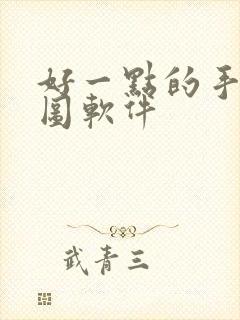 好一點的手
圖軟件
武青三